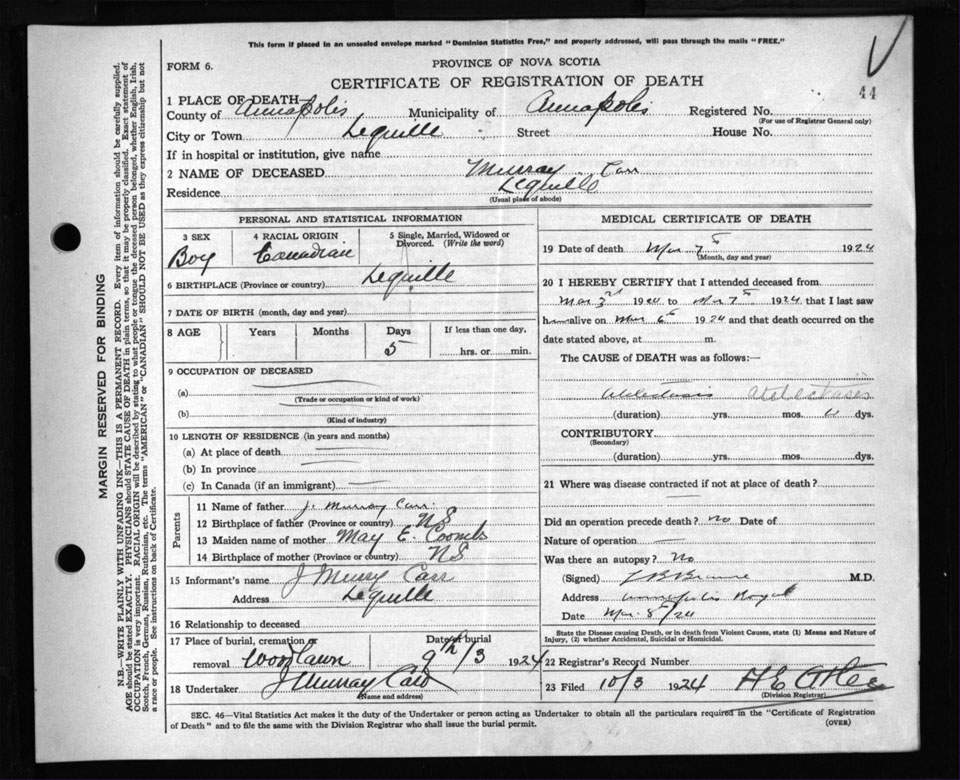 This form if placed in an unsealed envelope marked "Dominion Statistics Free," and properly addressed, will pass through the mails "FREE."
FORM 6.
PROVINCE OF NOVA SCOTIA
CERTIFICATE OF REGISTRATION OF DEATH
44
1 PLACE OF DEATH—
County of Annapolis Municipality of Annapolis Registered No.
(For use of Registrar General only)
City or Town Lequille Street House No.
If in hospital or institution, give name
2 NAME OF DECEASED Murray Carr
Residence Lequille
(Usual place of abode)
PERSONAL AND STATISTICAL INFORMATION
3 SEX 4 RACIAL ORIGIN 5 Single, Married, Widowed or Divorced. (Write the word)
Boy Canadian
6 BIRTHPLACE (Province or country) Lequille
7 DATE OF BIRTH (month, day and year)
8 AGE Years Months Days If less than one day,
5 hrs. or min.
9 OCCUPATION OF DECEASED
(a)
(Trade or occupation or kind of work)
(b)
(Kind of industry)
10 LENGTH OF RESIDENCE (in years and months)
(a) At place of death
(b) In province
(c) In Canada (if an immigrant)
Parents
11 Name of father J. Murray Carr
12 Birthplace of father (Province or country) NS
13 Maiden name of mother May E. Coombs
14 Birthplace of mother (Province or country) NS
15 Informant's name J Murry Carr
Address Lequille
16 Relationship to deceased
17 Place of burial, cremation or removal Woodlawn Date of burial 9th/3 1924
18 Undertaker J Murray Carr
(Name and address)
MEDICAL CERTIFICATE OF DEATH
19 Date of death Mar 7th 1924
(Month, day and year)
20 I HEREBY CERTIFY that I attended deceased from
Mar 3rd 1924 to Mar 7th 1924 that I last saw
h alive on Mar 6th 1924 and that death occurred on the
date stated above, at m.
The CAUSE of DEATH was as follows:—
Atelectasis Atelectasis
(duration) yrs. mos. dys.
CONTRIBUTORY
(Secondary)
(duration) yrs. mos. dys.
21 Where was disease contracted if not at place of death?
Did an operation precede death? no Date of
Nature of operation
Was there an autopsy? No
(Signed) M.D.
Address Annapolis Royal
Date Mar. 8th/24
State the Disease causing Death, or in death from Violent Causes, state (1) Means and Nature of
Injury, (2) whether Accidental, Suicidal or Homicidal.
22 Registrar's Record Number
23 Filed 10/3 1924
(Division Registrar)
SEC. 46—Vital Statistics Act makes it the duty of the Undertaker or person acting as Undertaker to obtain all the particulars required in the "Certificate of Registration
of Death" and to file the same with the Division Registrar who shall issue the burial permit.
(OVER)
MARGIN RESERVED FOR BINDING
N.B.—WRITE PLAINLY WITH UNFADING INK—THIS IS A PERMANENT RECORD. Every item of information should be carefully supplied.
AGE should be stated EXACTLY. PHYSICIANS should STATE CAUSE OF DEATH in plain terms, so that it may be properly classified. Exact statement of
OCCUPATION is very important. RACIAL ORIGIN will be described by stating to what people or tongue the deceased person belonged, whether English, Irish,
Scotch, French, German, Russian, Ruthenian, etc. The terms "AMERICAN" or "CANADIAN" SHOULD NOT BE USED as they express citizenship but not
a race or people. See instructions on back of Certificate.